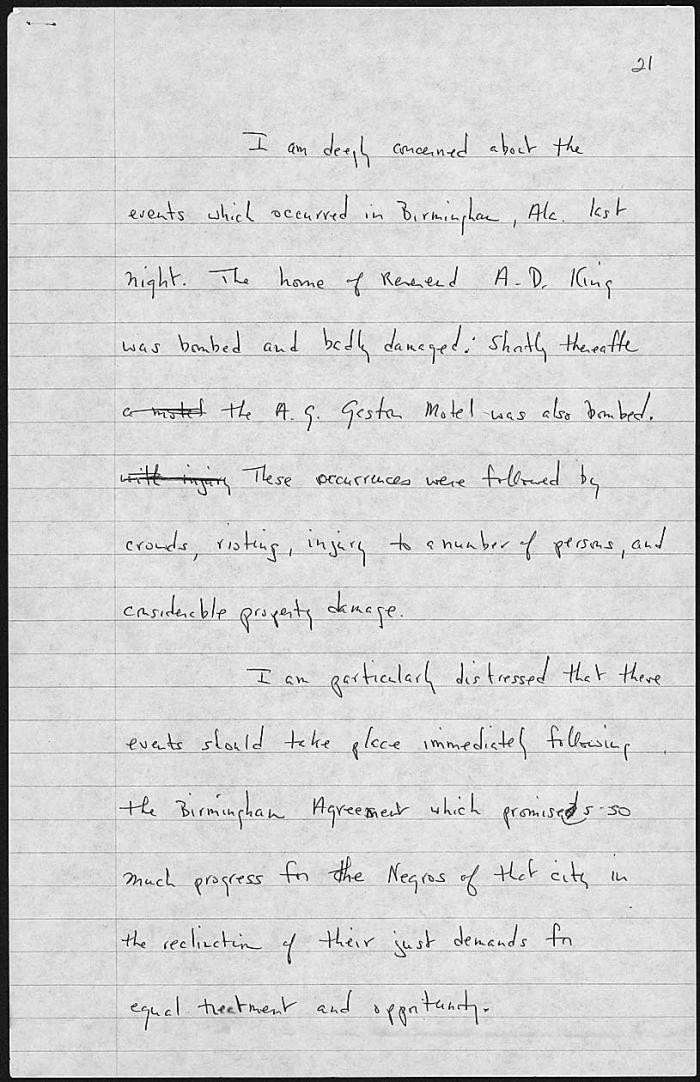 21
I am deeply concerned about the
events which occurred in Birmingham, Ala. last
night. The home of Reverend A. D. King
was bombed and badly damaged. Shortly thereafter
a motel the A. G. Gaston Motel was also bombed.
with injury These occurrences were followed by
crowds, rioting, injury to a number of persons, and
considerable property damage.
I am particularly distressed that these
events should take place immediately following
the Birmingham Agreement which promises so
much progress for the Negros of that city in
the realization of their just demands for
equal treatment and opportunity.